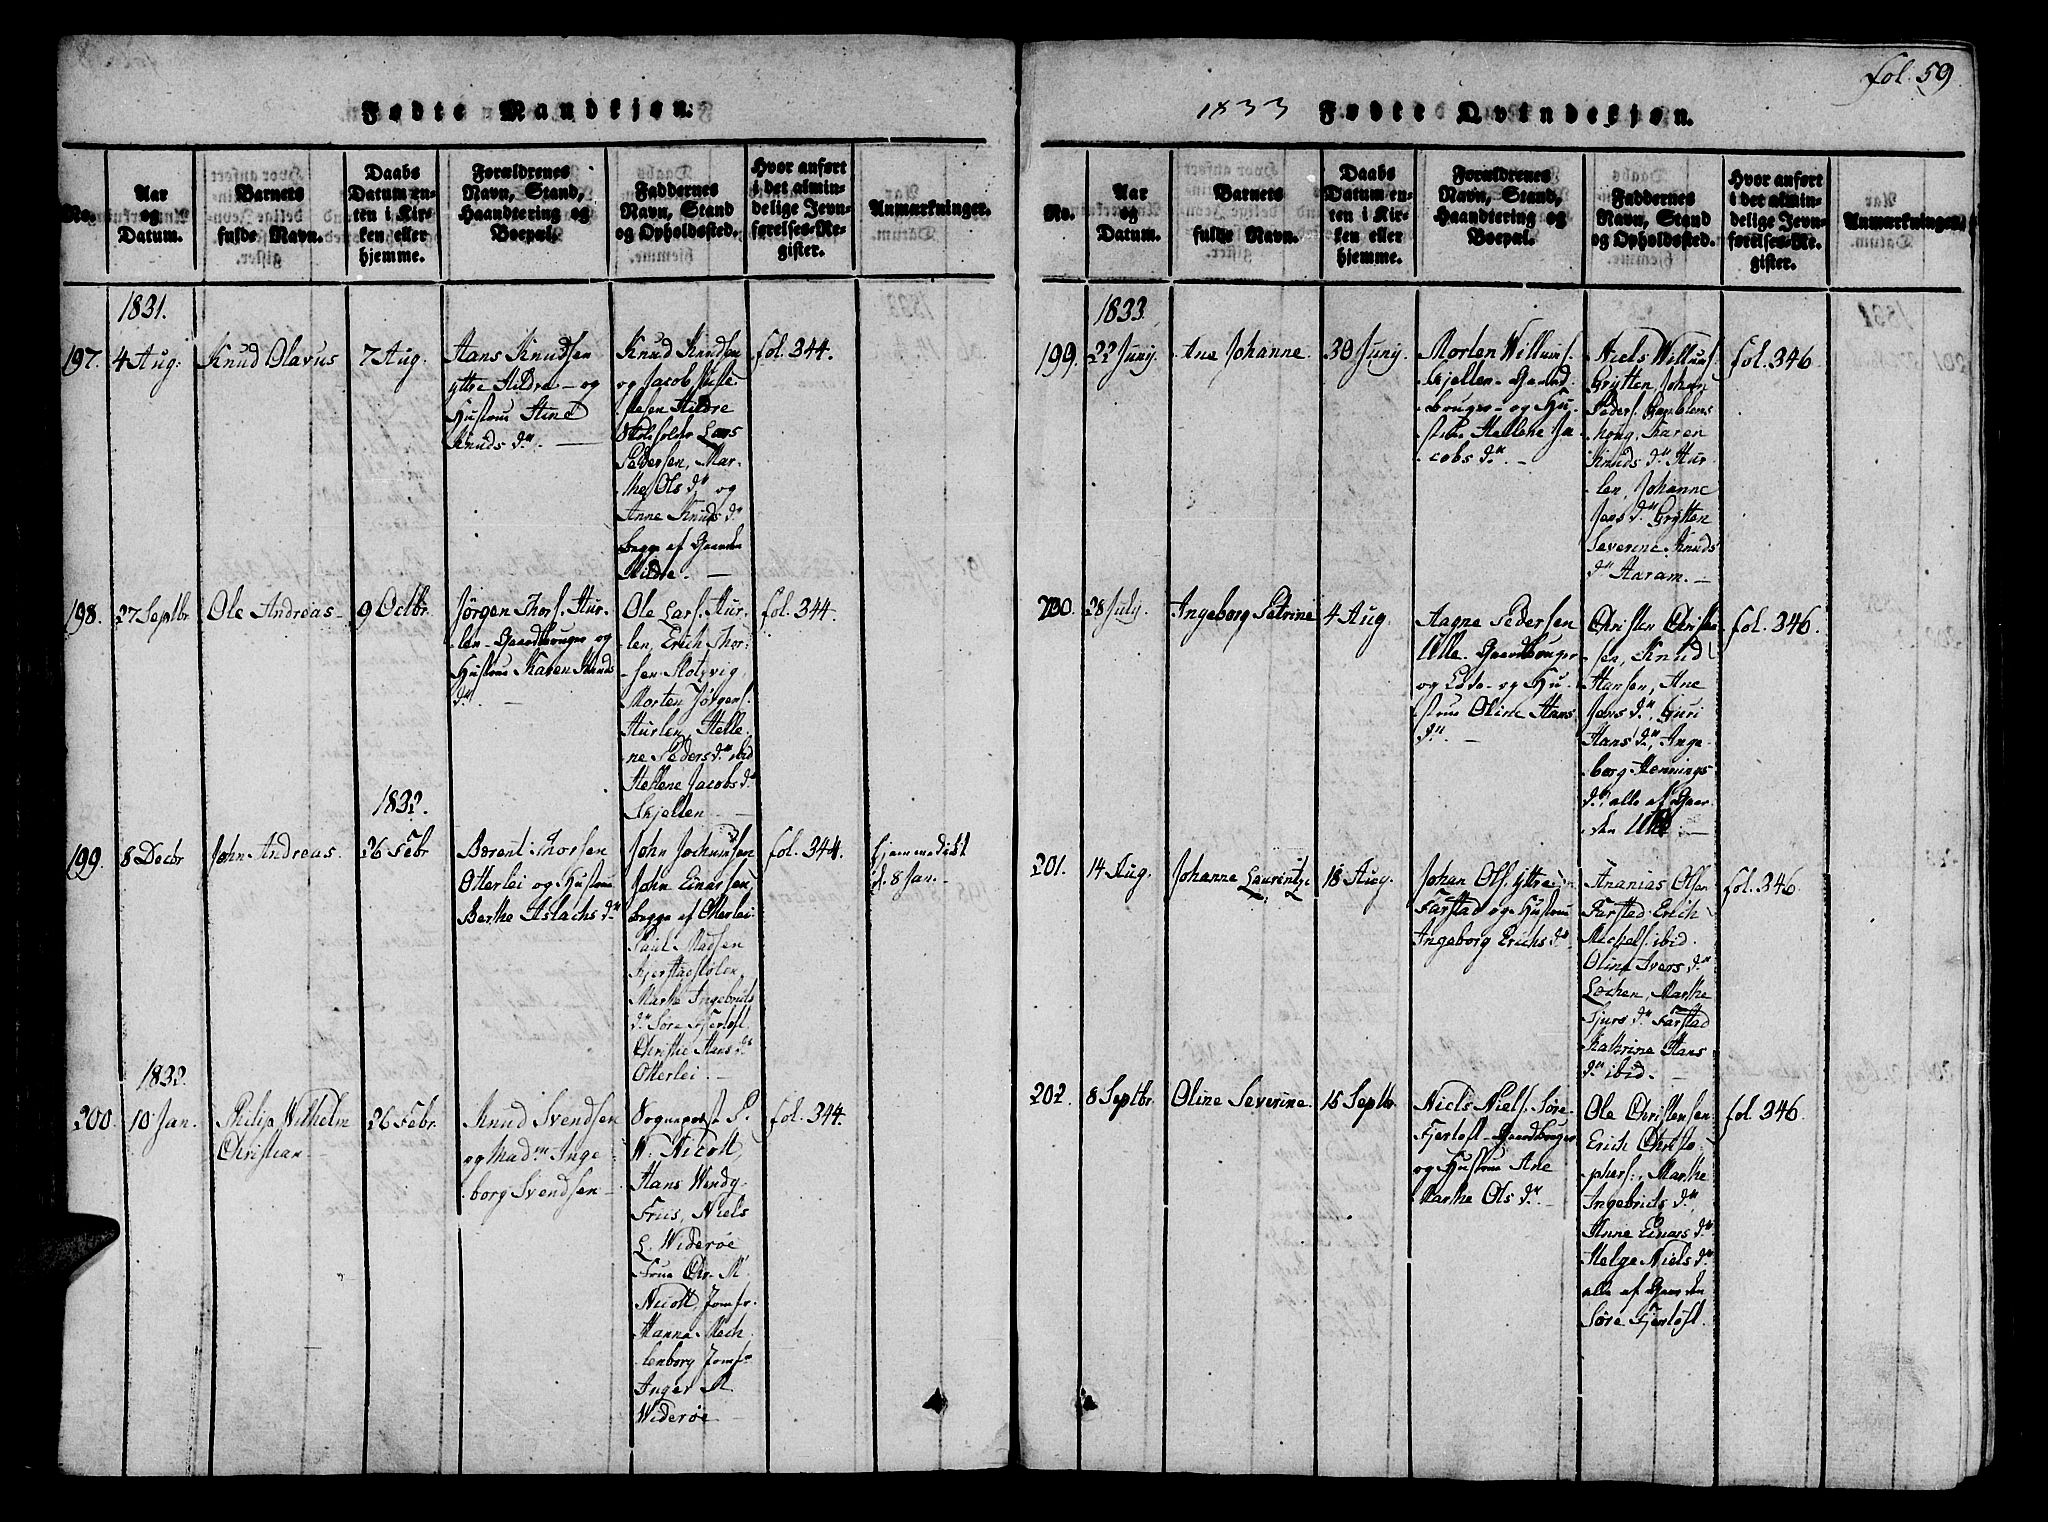 fol. 59
Fødte Mandkjøn.
No.
Aar
og
Datum.
Barnets
fulde Navn.
Daabs
Datum en-
ten i Kir-
ken eller
hjemme.
Forældrenes
Navn, Stand,
Haandtering og
Boepæl.
Faddernes
Navn, Stand
og Opholdssted.
Hvor anført
i det almin-
delige Jevn-
førelses-Re-
gister.
Anmærkninger.
1831.
197.
4 Aug:
Knud Olavus
7 Aug.
Hans Knudsen
yttre Hildre - og
Hustrue Stine
Knuds dr.
Knud Knudsen
og Jacob
Hildre
Lars
Pedersen, Mar-
the Ols dr og
Anne Knuds dr
begge af Gaarden
Hildre.
fol. 344.
198.
27 Septbr
Ole Andreas
9 Octbr.
Jørgen Thors. Hur-
len - Gaardbruger og
Hustrue Karen Knuds
dr.
Ole Lars. Hur-
len, Erich Thor-
sen
Morten Jørgens.
Hurlen, Helle-
ne Peders dr ibid
Hellene Jacobs dr
Skjelten
fol. 344.
1832.
199
8 Decbr
John Andreas.
26 Febr
Berent Thorsen
Otterlei og Hustrue
Berthe Aslachs dr
John Jochumsen
John Einarsen,
begge af Otterlei
Paul Madsen
Marthe Ingebrits
dr Søre Fjertoft
Christie Hans dr
Otterlei.
fol. 344.
Hjemmedøbt
d. 8 Jan.
1832.
200.
10 Jan.
Philip Wilhelm
Christian
26 Febr.
Knud Svendsen
og Mad. Inge-
borg Svendsen
Sogneprest P.
W. Nicoll,
Hans Wendy-
Friis, Niels
L. Widerøe
Frue Chr. M
Nicoll, Jomfr.
Hanna Mech-
lenborg Jomfr
Inger M
Widerøe
fol. 344.
1833 Fødte Qvindekjøn.
No.
Aar
og
Datum.
Barnets
fulde Navn.
Daabs
Datum en-
ten i Kir-
ken eller
hjemme.
Forældrenes
Navn, Stand,
Haandtering og
Boepæl.
Faddernes
Navn, Stand
og Opholdssted.
Hvor anført
i det almin-
delige Jevn-
førelses-Re-
gister.
Anmærkninger.
1833.
199.
22 Junij.
Ane Johanne.
30 Junij
Morten Willums.
Skjelten - Gaard-
bruger - og Hu-
strue Hellene Ja-
cobs dr.
Niels Willums.
Grytten, Johan
Peders.
Karen
Knuds dr Hur-
len, Johanne
Jons dr Grytten
Severine Knuds
dr Haram.
fol. 346.
200.
28 July.
Ingeborg Petrine
4 Aug.
Aagne Pedersen
Ulle. Gaardbruger
og Hu-
strue Oline Hans
dr.
Christen Christen-
sen, Knud
Hansen, Ane
Jons dr, Guri
Hans dr, Inge-
borg Hennings
dr. alle af Gaar-
den Ulle
fol. 346.
201.
14 Aug.
Johanne Laurentze
18 Aug
Johan Ols. yttre
Farstad og Hustrue
Ingeborg Erichs dr
Ananias Olsen
Farsted. Erich
Michels. ibid.
Oline Ivers dr
Løchen, Marthe
Sjurs dr Farstad
Kathrine Hans
dr ibid.
fol. 346.
202.
8 Septbr.
Oline Severine.
15 Septbr
Niels Niels. Søre-
Fjertoft - Gaardbruger
og Hustrue Ane
Marthe Ols dr.
Ole Christensen
Erich Christo-
phers., Marthe
Ingebrids dr,
Anne Einars dr
Helge Niels dr
alle af Gaarden
Søre Fjertoft.
fol. 346.